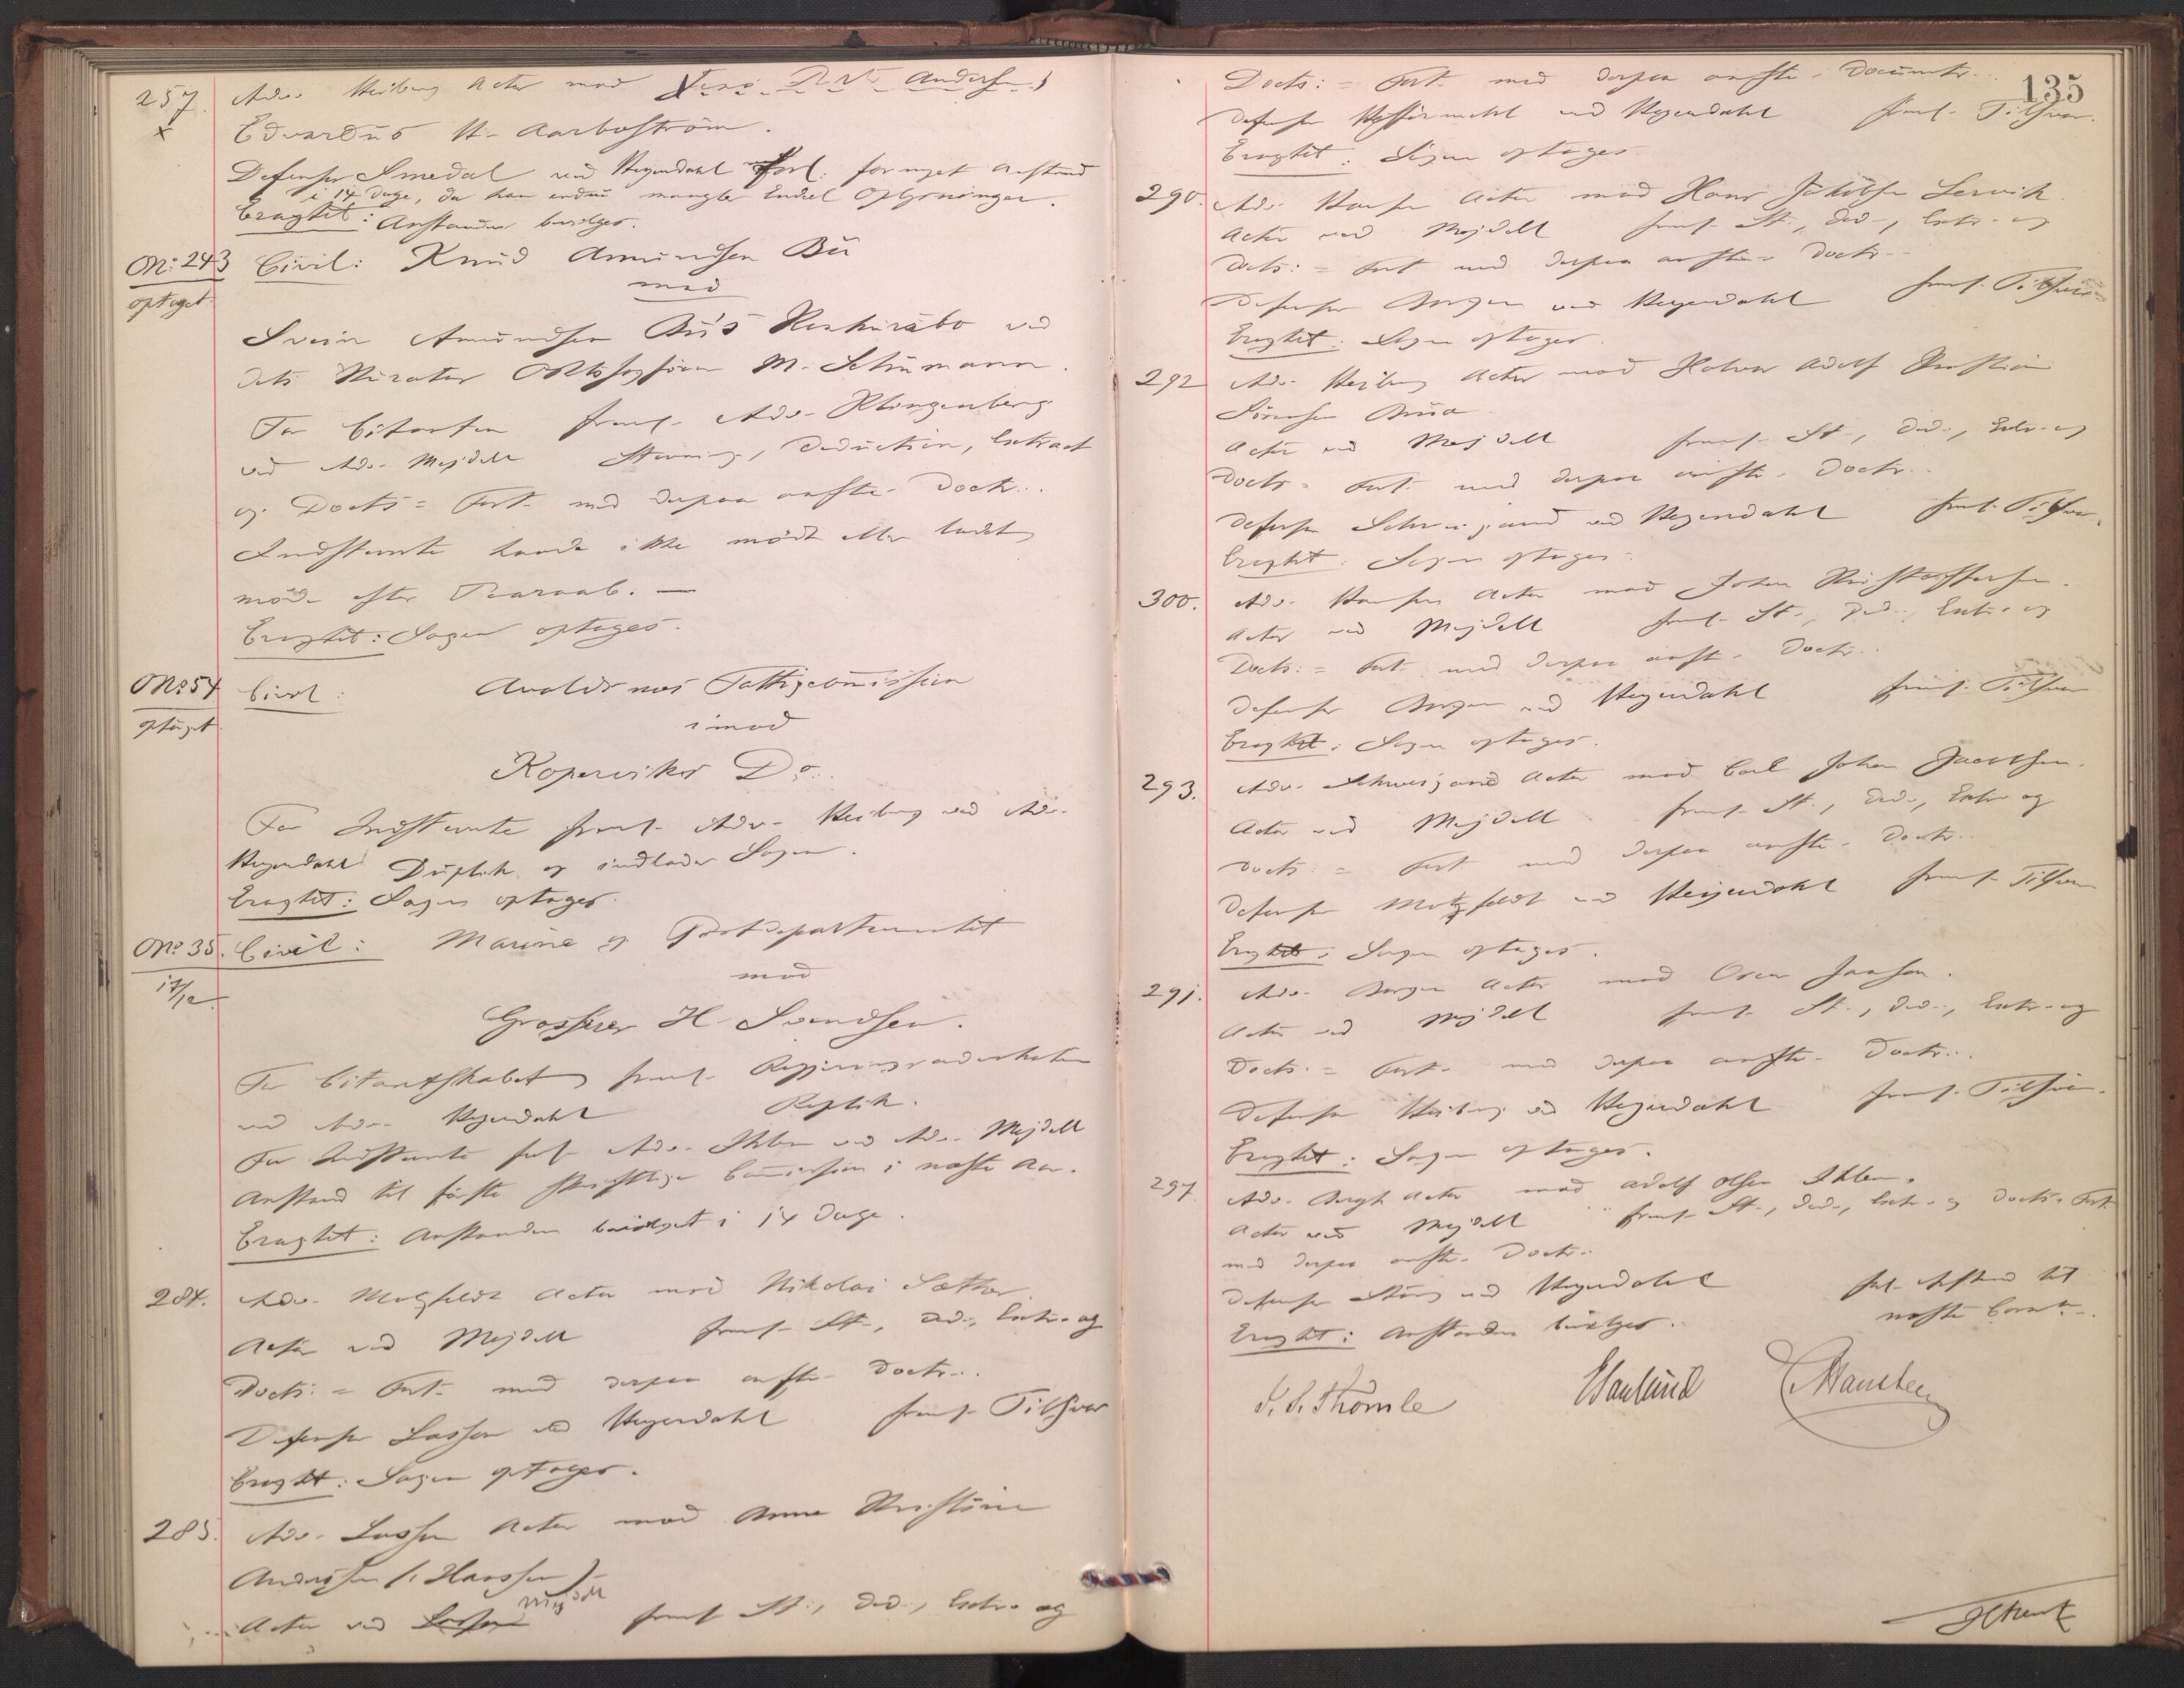 257. Adv. Heiberg Actor mod Andersen
x Edvardus H- Aarbostrøm.
Defensor Smedal ved Heyerdahl forl: fornyet Anstand
i 14 Dage, da han endnu mangler Endel Oplysninger.
Eragtet: Anstanden bevilges.
No. 243 Civil: Knud Amundsen Bü
optaget mod
Svein Amundsen Bü's Konkursbo ved
dets Kurator M. Schümann.
For Citanten freml- Adv- Klingenberg
ved Adv- Mejdell Stevning, Deduction, Extract
og Docts = Fort- med derpaa anførte- Doctr..
Indstevnte havde ikke mødt eller ladet
møde efter Paaraab. —
Eragtet: Sagen optages.
No. 54 Civil: Avaldsnes Fattigcommission
optaget imod
Koperviks Do.
For Indstevnte freml- Adv- Heiberg ved Adv-
Heyerdahl Duplik og indlader Sagen.
Eragtet: Sagen optages.
No. 35. Civil: Marine og Postdepartementet
17/12. mod
Grosserer H- Svendsen.
For Citantskabet freml- Regjeringsadvokaten
ved Adv- Heyerdahl Replik.
For Indstevnte forl- Adv- Ihlen ved Adv- Mejdell
Anstand til første skriftlige Session i næste Aar.
Eragtet: Anstanden bevilget i 14 Dage.
284. Adv- Motzfeldt Actor mod Nikolai Sæther
Actor ved Mejdell freml- St-, Ded-, Extr- og
Docts: = Fort- med derpaa anførte- Doctr..
Defensor Lassen ved Heyerdahl freml- Tilsvar
Eragtet: Sagen optages.
285. Adv- Lassen Actor mod Anna Kristine
Andersen (: Hansen)
Actor ved Mejdell freml- St-, Ded-, Extr- og
135
Docts: = Fort- med derpaa anførte- Documtr..
Defensor ved Heyerdahl freml- Tilsvar.
Eragtet: Sagen optages
290. Adv- Hansen Actor mod Hans Jakobsen Lervik.
Actor ved Mejdell freml- St-, Ded-, Extr- og
Docts: = Fort- med derpaa anførte- Doctr..
Defensor Borgen ved Heyerdahl freml- Tilsvar
Eragtet: Sagen optages.
292 Adv- Heiberg Actor mod Halvor Adolf Kristian
Sørensen Brua
Actor ved Mejdell freml- St-, Ded-, Extr- og
Docts = Fort- med derpaa anførte- Doctr..
Defensor Schweigaard ved Heyerdahl freml- Tilsvar.
Eragtet: Sagen optages.
300. Adv- Hansen Actor mod Johan Kristoffersen.
Actor ved Mejdell freml- St-, Ded-, Extr- og
Docts: = Fort- med derpaa anførte- Doctr..
Defensor Borgen ved Heyerdahl freml- Tilsvar
Eragtet: Sagen optages.
293. Adv- Schweigaard Actor mod Carl Johan Jacobsen.
Actor ved Mejdell freml- St-, Ded-, Extr- og
Docts: = Fort- med derpaa anførte- Doctr..
Defensor Motzfeldt ved Heyerdahl freml- Tilsvar
Eragtet: Sagen optages.
291. Adv- Borgen Actor mod Oscar Jansen.
Actor ved Mejdell freml- St-, Ded-, Extr- og
Docts: = Fort- med derpaa anførte- Doctr..
Defensor Heiberg ved Heyerdahl freml- Tilsvar.
Eragtet: Sagen optages.
297. Adv- Bergh Actor mod Adolf Olsen Ihlen.
Actor ved Mejdell freml- St-, Ded-, Extr- og Docts = Fort-
med derpaa anførte- Doctr..
Defensor ved Heyerdahl forl- Anstand til
Eragtet: Anstanden bevilges. næste
Thomle Hansteen